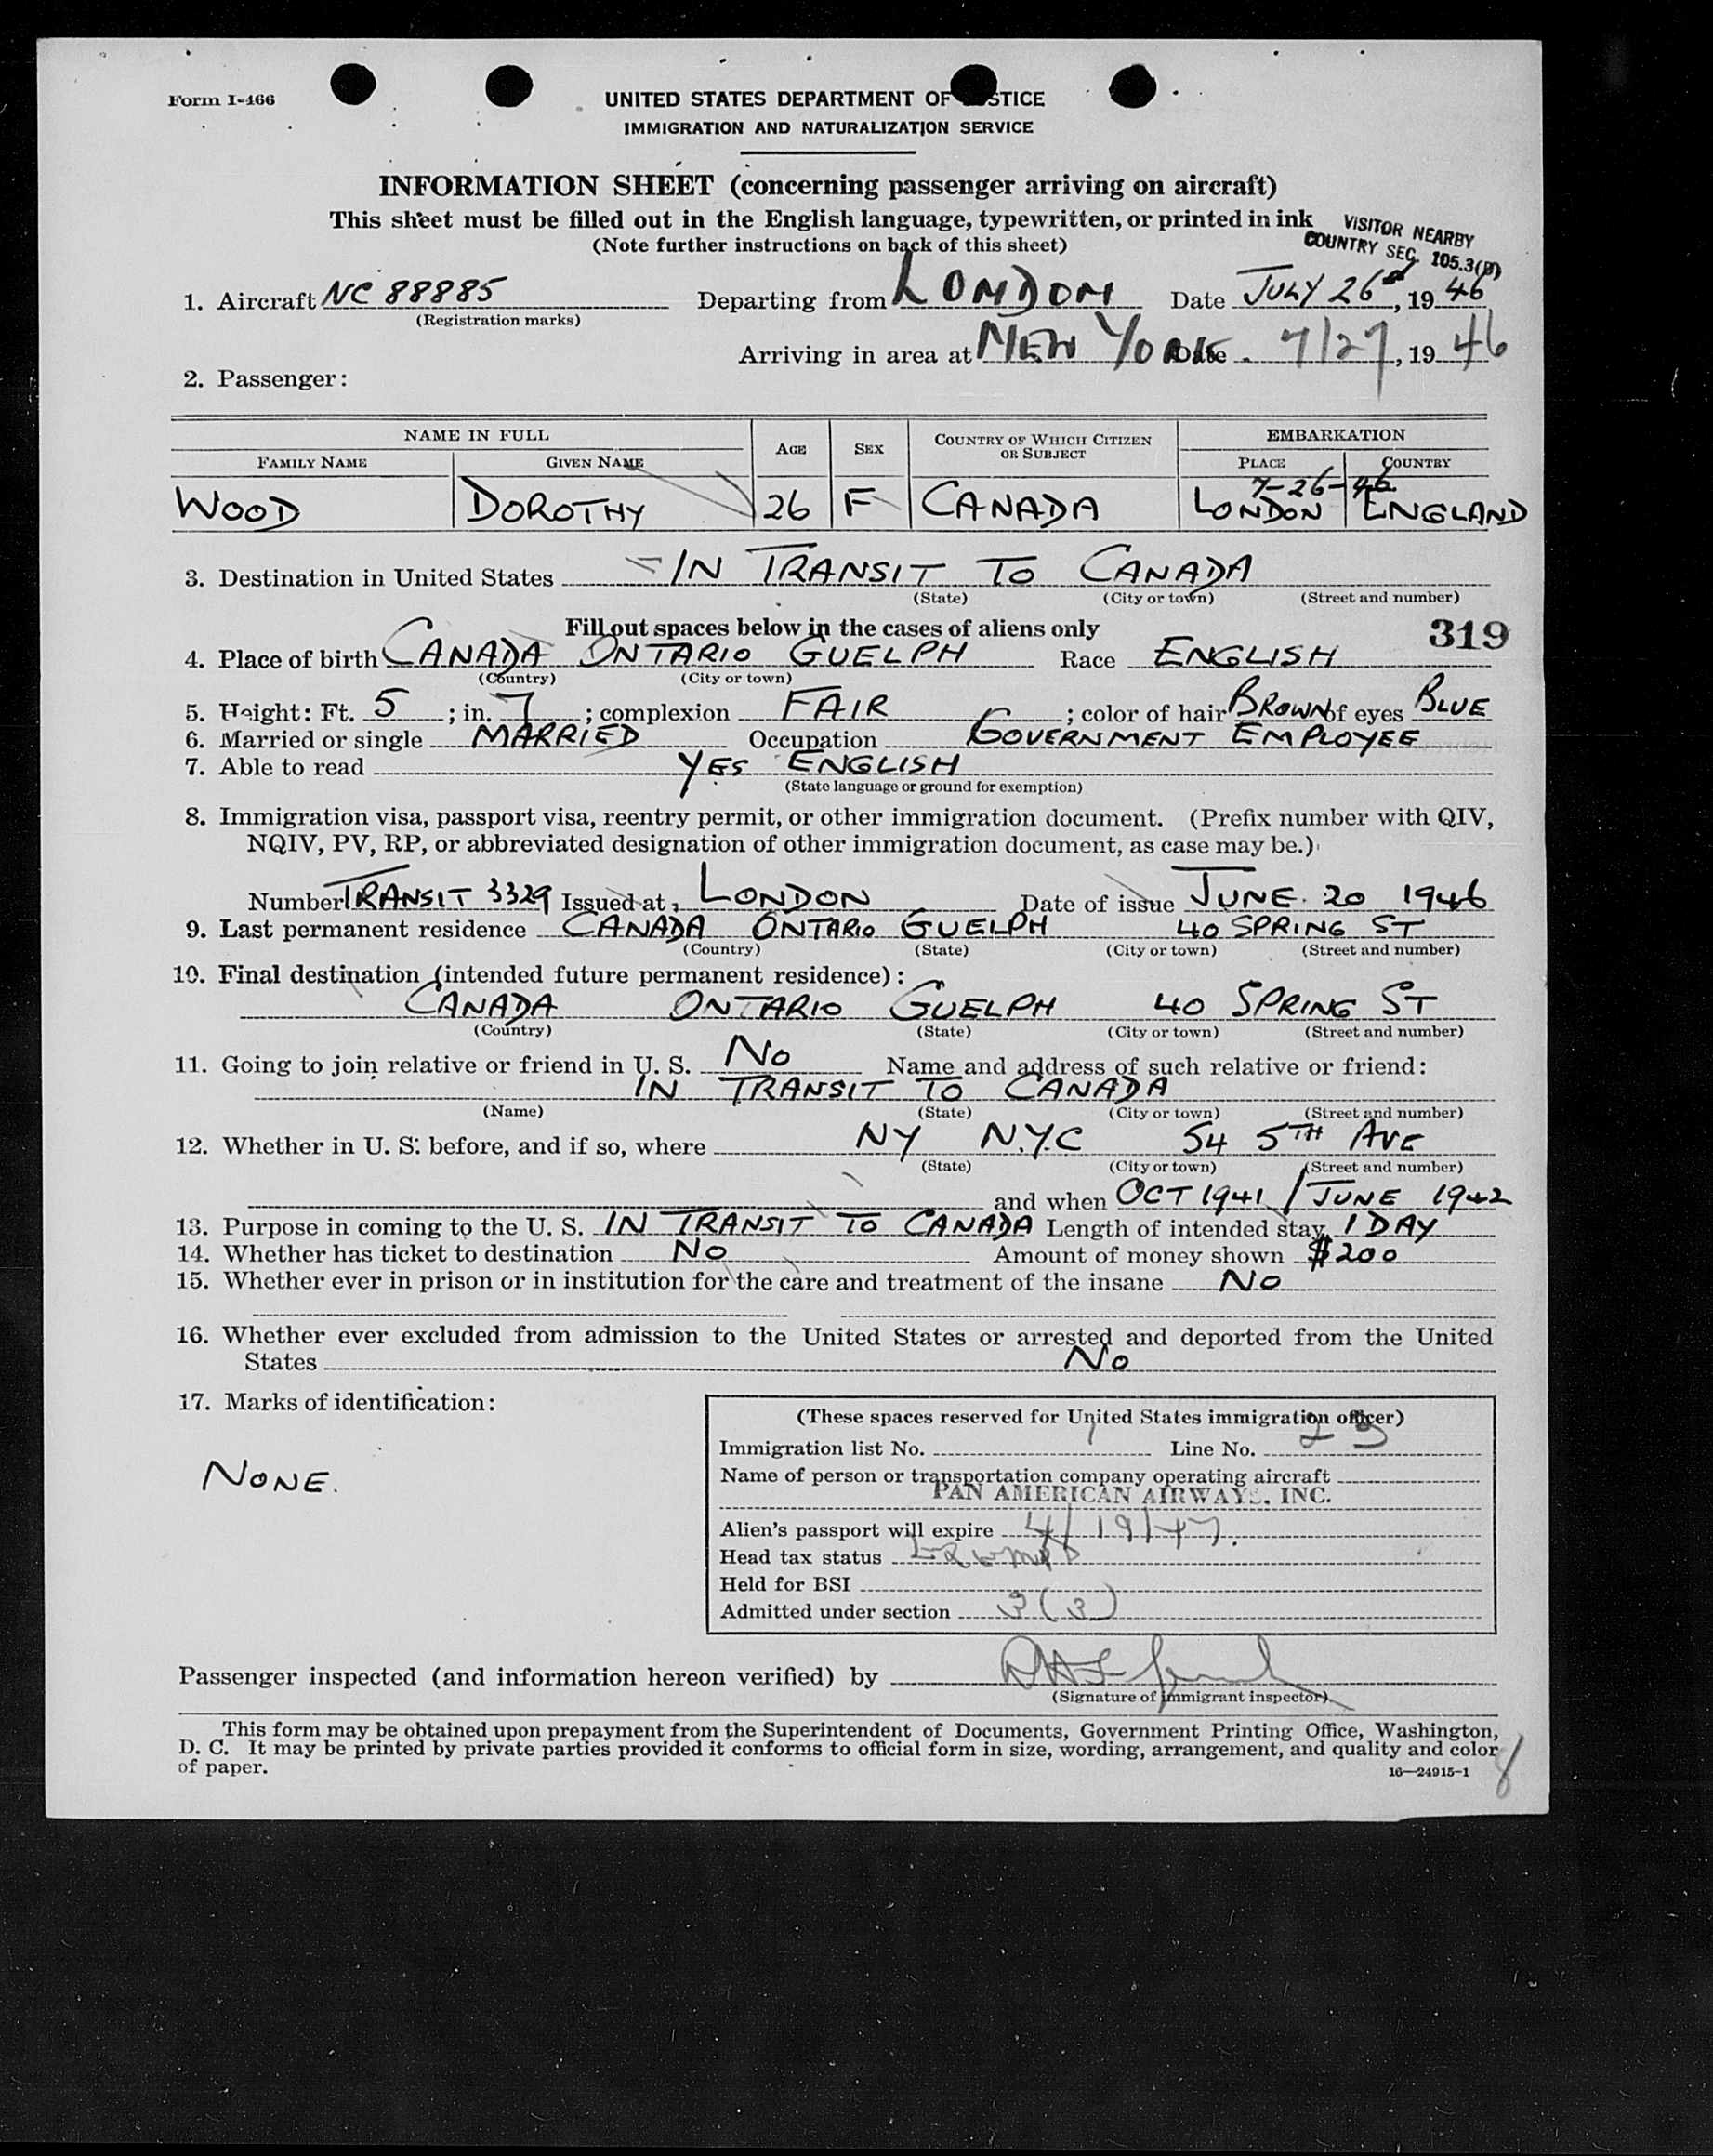 Form I-466
UNITED STATES DEPARTMENT OF STICE
IMMIGRATION AND NATURALIZATION SERVICE
INFORMATION SHEET (concerning passenger arriving on aircraft)
This sheet must be filled out in the English language, typewritten, or printed in ink
(Note further instructions on back of this sheet)
VISITOR NEARBY
COUNTRY SEC. 105.3(B)
1. Aircraft NC 88885 Departing from LONDON Date JULY 26, 1946
(Registration marks)
Arriving in area at NEW YORK Date 7/27, 1946
2. Passenger:
NAME IN FULL AGE SEX COUNTRY OF WHICH CITIZEN OR SUBJECT EMBARKATION
FAMILY NAME GIVEN NAME PLACE COUNTRY
7-26-46
WOOD DOROTHY 26 F CANADA LONDON ENGLAND
3. Destination in United States IN TRANSIT TO CANADA
(State) (City or town) (Street and number)
Fill out spaces below in the cases of aliens only 319
4. Place of birth CANADA ONTARIO GUELPH Race ENGLISH
(Country) (City or town)
5. Height: Ft. 5; in. 7; complexion FAIR; color of hair BROWN of eyes BLUE
6. Married or single MARRIED Occupation GOVERNMENT EMPLOYEE
7. Able to read YES ENGLISH
(State language or ground for exemption)
8. Immigration visa, passport visa, reentry permit, or other immigration document. (Prefix number with QIV,
NQIV, PV, RP, or abbreviated designation of other immigration document, as case may be.)
Number TRANSIT 3329 Issued at LONDON Date of issue JUNE 20 1946
9. Last permanent residence CANADA ONTARIO GUELPH 40 SPRING ST
(Country) (State) (City or town) (Street and number)
10. Final destination (intended future permanent residence):
CANADA ONTARIO GUELPH 40 SPRING ST
(Country) (State) (City or town) (Street and number)
11. Going to join relative or friend in U. S. NO Name and address of such relative or friend:
IN TRANSIT TO CANADA
(Name) (State) (City or town) (Street and number)
12. Whether in U. S. before, and if so, where NY N.Y.C 54 5TH AVE
(State) (City or town) (Street and number)
and when OCT 1941 / JUNE 1942
13. Purpose in coming to the U. S. IN TRANSIT TO CANADA Length of intended stay 1 DAY
14. Whether has ticket to destination NO Amount of money shown $200
15. Whether ever in prison or in institution for the care and treatment of the insane NO
16. Whether ever excluded from admission to the United States or arrested and deported from the United
States NO
17. Marks of identification:
NONE.
(These spaces reserved for United States immigration officer)
Immigration list No. 1 Line No. 23
Name of person or transportation company operating aircraft
PAN AMERICAN AIRWAYS, INC.
Alien's passport will expire 4/19/47.
Head tax status Exempt
Held for BSI
Admitted under section 3(3)
Passenger inspected (and information hereon verified) by
(Signature of immigrant inspector)
This form may be obtained upon prepayment from the Superintendent of Documents, Government Printing Office, Washington,
D. C. It may be printed by private parties provided it conforms to official form in size, wording, arrangement, and quality and color
of paper.
16—24915-1
8